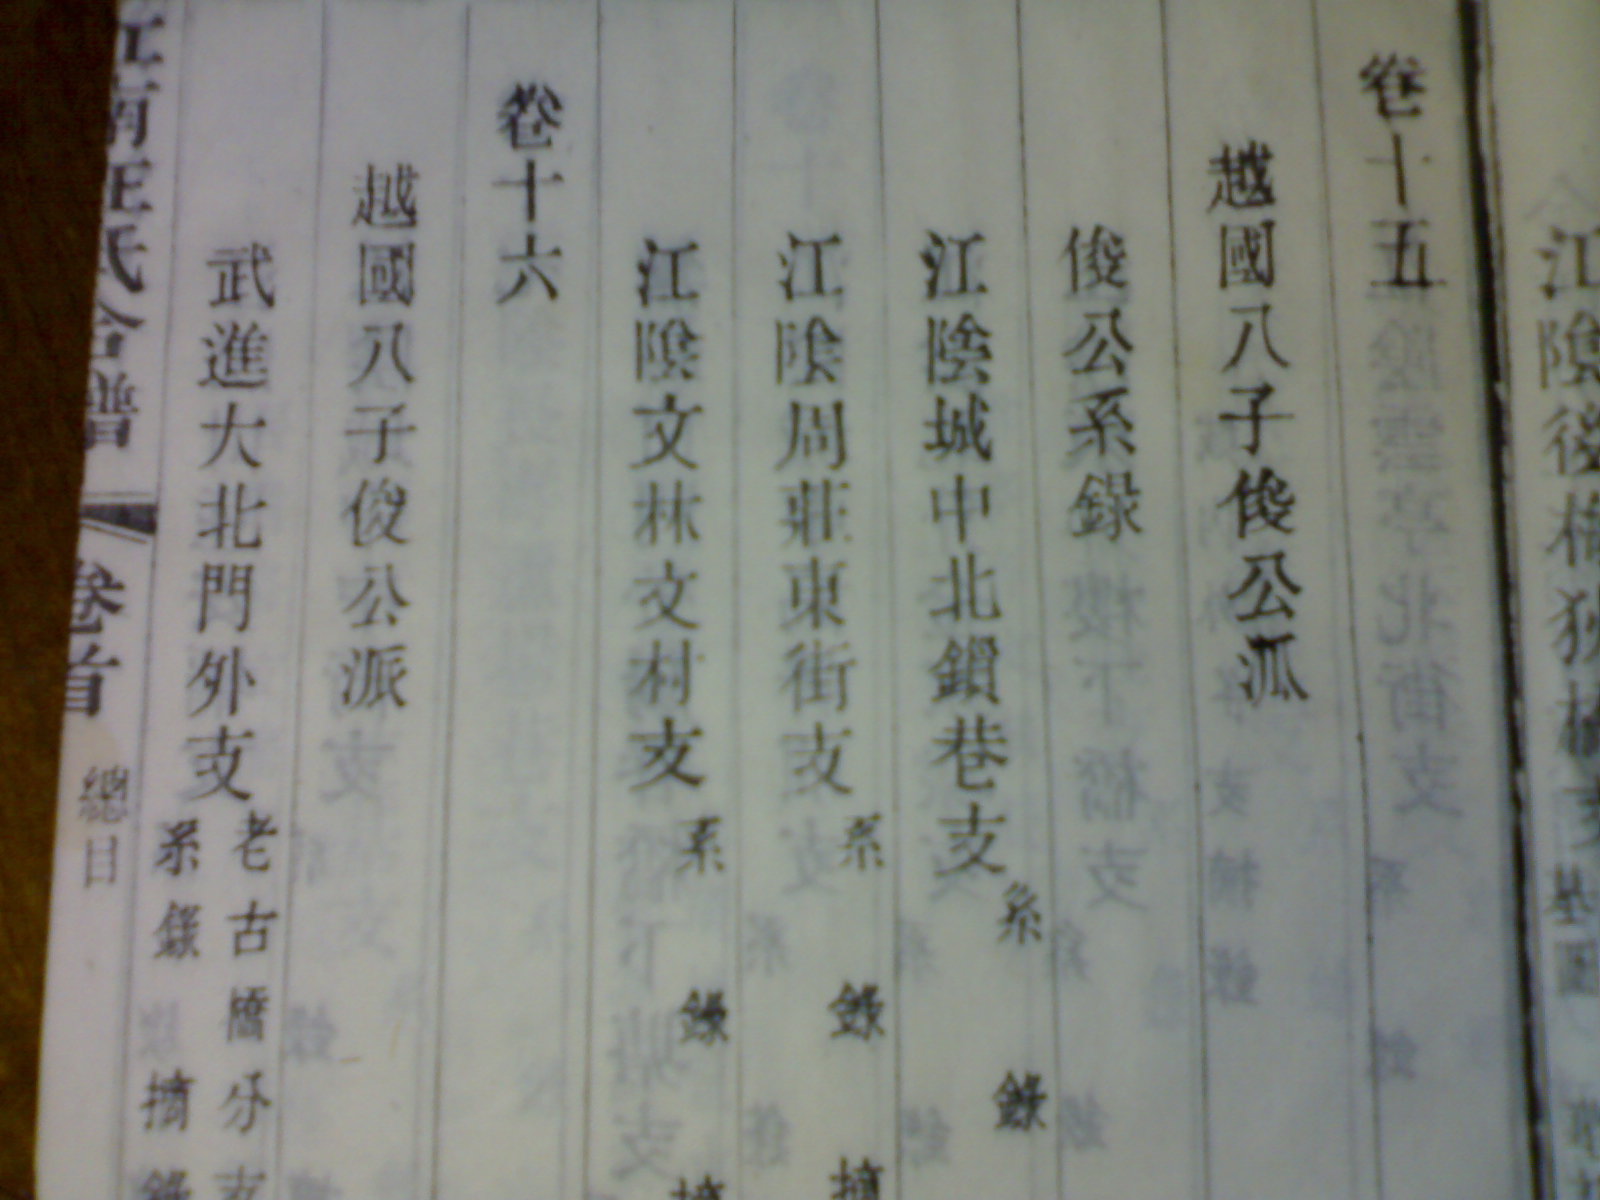 江陰後梅
卷十五
越國八子俊公派
俊公系錄
江陰城中北鎖巷支 系錄
江陰周莊東街支 系錄 摘
江陰文林文村支 系錄 摘
卷十六
越國八子俊公派
武進大北門外支 老古橋分支
系錄 摘錄
江南汪氏合譜 卷首 總目